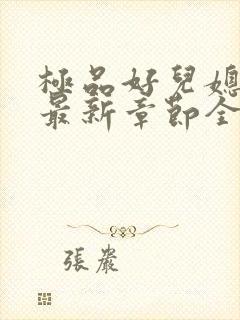 極品好兒媳
最新章節全
張嚴